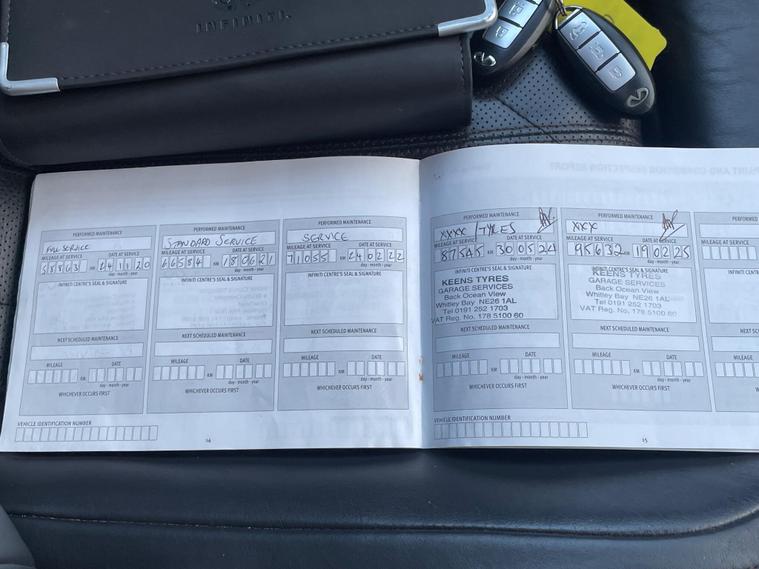 INFINITI.
PERFORMED MAINTENANCE
FULL SERVICE
MILEAGE AT SERVICE DATE AT SERVICE
KM 241120
day - month - year
INFINITI CENTRE'S SEAL & SIGNATURE
NEXT SCHEDULED MAINTENANCE
MILEAGE DATE
KM
day - month - year
WHICHEVER OCCURS FIRST
PERFORMED MAINTENANCE
STANDARD SERVICE
MILEAGE AT SERVICE DATE AT SERVICE
66584 KM 180621
day - month - year
INFINITI CENTRE'S SEAL & SIGNATURE
NEXT SCHEDULED MAINTENANCE
MILEAGE DATE
KM
day - month - year
WHICHEVER OCCURS FIRST
PERFORMED MAINTENANCE
SERVICE
MILEAGE AT SERVICE DATE AT SERVICE
71055 KM 240222
day - month - year
INFINITI CENTRE'S SEAL & SIGNATURE
NEXT SCHEDULED MAINTENANCE
MILEAGE DATE
KM
day - month - year
WHICHEVER OCCURS FIRST
VEHICLE IDENTIFICATION NUMBER
14
PERFORMED MAINTENANCE
XXXX / TYRES
MILEAGE AT SERVICE DATE AT SERVICE
87545 KM 300524
day - month - year
INFINITI CENTRE'S SEAL & SIGNATURE
KEENS TYRES
GARAGE SERVICES
Back Ocean View
Whitley Bay NE26 1AL
Tel 0191 252 1703
VAT Reg. No. 178 5100 60
NEXT SCHEDULED MAINTENANCE
MILEAGE DATE
KM
day - month - year
WHICHEVER OCCURS FIRST
PERFORMED MAINTENANCE
XXX
MILEAGE AT SERVICE DATE AT SERVICE
95632 KM 190225
day - month - year
INFINITI CENTRE'S SEAL & SIGNATURE
KEENS TYRES
GARAGE SERVICES
Back Ocean View
Whitley Bay NE26 1AL
Tel 0191 252 1703
VAT Reg. No. 178 5100 60
NEXT SCHEDULED MAINTENANCE
MILEAGE DATE
KM
day - month - year
WHICHEVER OCCURS FIRST
PERFORMED
MILEAGE AT SERVICE
INFINITI CENTRE'S
NEXT SCHEDULED
MILEAGE
WHICHEVER
VEHICLE IDENTIFICATION NUMBER
15